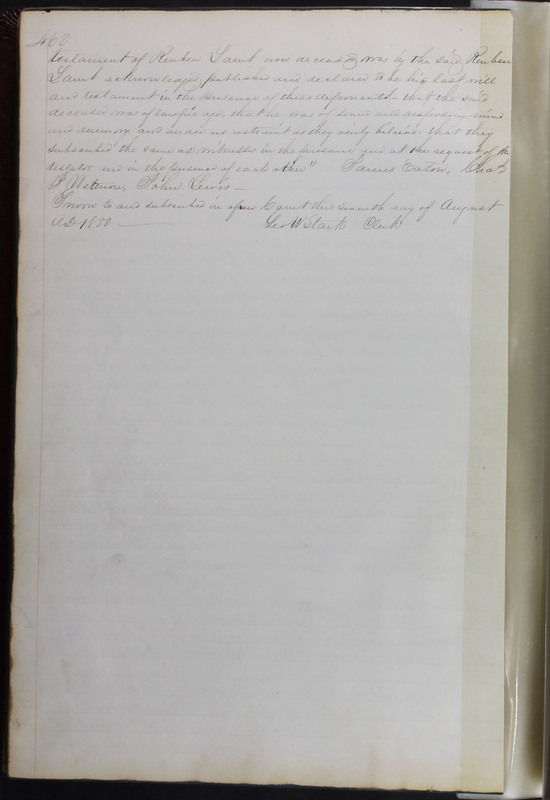 460
testament of Reuben Lamb now deceased was by the said Reuben
Lamb acknowledged, published and declared to be his last will
and testament in the presence of these deponents — that the said
deceased was of lawful age, that he was of sound and disposing mind
and memory and under no restraint as they verily believe. that they
subscribed the same as witnesses in the presence and at the request of the
testator and in the presence of each other" James Eaton, Chas
P. John Lewis —
Sworn to and subscribed in open Court this seventh day of August
AD 1850 — Geo W Stark Clerk